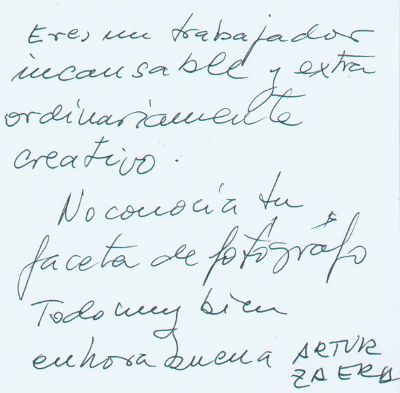 Eres un trabajador
incansable y extra
ordinariamente
creativo.
No conocía tu
faceta de fotógrafo
Todo muy bien
enhorabuena ARTUR
ZAERA